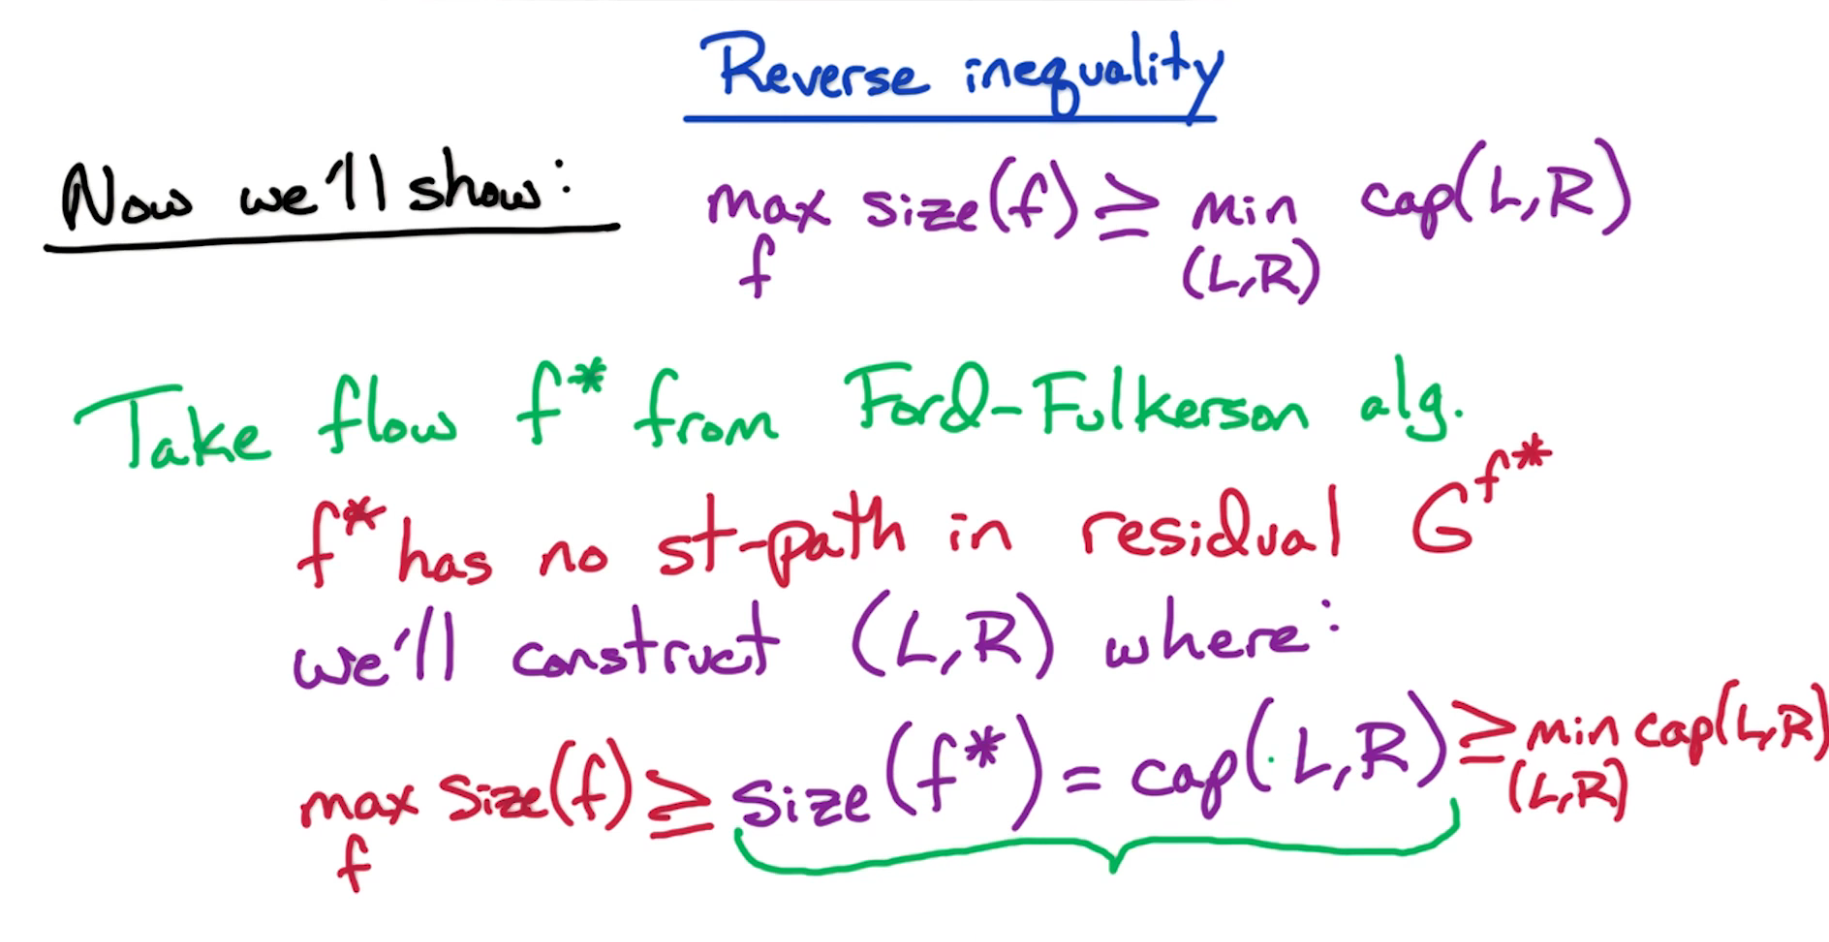 Reverse inequality
Now we'll show: max size(f) ≥ min cap(L,R)
f (L,R)
Take flow f* from Ford-Fulkerson alg.
f* has no st-path in residual G^f*
we'll construct (L,R) where:
max size(f) ≥ size(f*) = cap(L,R) ≥ min cap(L,R)
f (L,R)